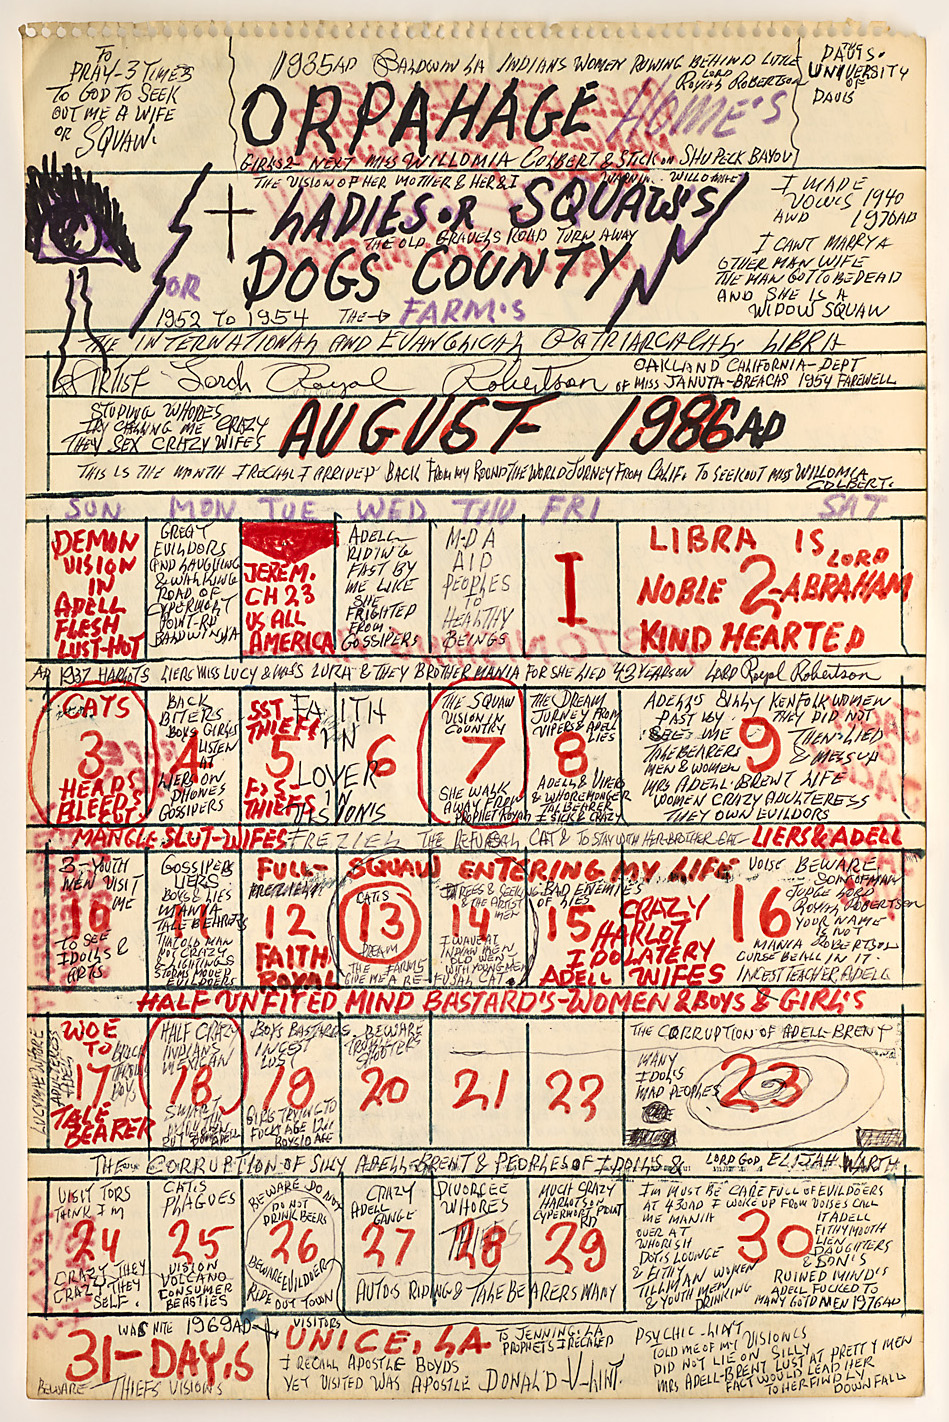 TO
PRAY-3 TIMES
TO GOD TO SEEK
OUT ME A WIFE
OR SQUAW.
1935AD BALDWIN LA INDIANS WOMEN ROWING BEHIND LUKE
LORD
ROYAL ROBERTSON
DAVIS.
UNIVERSITY
OF
DAVIS
ORPAHAGE HOME'S
GIRLS 2 NEXT MISS WILLOMIA COLBERT & STICK ON SHUPECK BAYOU
THE VISION OF HER MOTHER & HER & I
LADIES OR SQUAW'S
THE OLD GRAVELS ROAD TURN AWAY
DOGS COUNTY
OR
1952 TO 1954 THE→ FARM'S
I MADE
VOWS 1940
AND 1970AD
I CAN'T MARRY A
OTHER MAN WIFE
THE MAN GOT TO BE DEAD
AND SHE IS A
WIDOW SQUAW
THE INTERNATIONAL AND EVANGLICAL PATRIARCALAL LIBRA
ARTIST Lord Royal Robertson
OAKLAND CALIFORNIA-DEPT
OF MISS JANUTA-BREACAS 1954 FAREWELL
STUDING WHORES
TRY CALLING ME CRAZY
THEY SEX CRAZY WIFES
AUGUST 1986 AD
THIS IS THE MONTH I RECALL I ARRIVED BACK FROM MY ROUND THE WORLD JURNEY FROM CALIF. TO SEEK OUT MISS WILLOMIA
COLBERT.
SUN MON TUE WED THU FRI SAT
DEMON
VISION
IN
ADELL
FLESH
LUST-HOT
GREAT
EVILDORS
AND LAUGHING
& WALKING
ROAD OF
CYPERMORT
POINT-RD
BALDWIN, LA
JEREM.
CH 23
US ALL
AMERICA
ADELL
RIDING
FAST BY
ME LIKE
SHE
FRIGHTED
FROM
GOSSIPERS
M-D-A
AID
PEOPLES
TO
HEALTHY
BEINGS
1
LIBRA IS LORD
NOBLE 2-ABRAHAM
KIND HEARTED
AD 1937 HARLOTS LIERS MISS LUCY & MISS LURA & THEY BROTHER MANIA FOR SHE LIED 49 YEARS ON LORD Royal Robertson
CATS
3
HEADS
BLEEDS
BACK
BITERS
BOYS GIRLS
LISTEN
AT
4
ON
PHONES
GOSSIPERS
SST
THIEFS
5
THIEFS
FAITH
IN
6
LOVER
IN
THE SQUAW
VISION IN
COUNTRY
7
SHE WALK
AWAY FROM
PROPHET ROYAL
THE DREAM
JURNEY FROM
VIPERS & ADELL
LIES
8
ADELL & VIPERS
& WHOREMONGER
TALBEARER
ADELL'S & SILLY KENFOLK WOMEN
PAST BY. THEY DID NOT
SEE ME THEN LIED
TALEBEARERS 9 & MESS UP
MEN & WOMEN
MRS ADELL-BRENT LIFE
WOMEN CRAZY ADULTERESS
THEY OWN EVILDORS
MANGLE SLUT-WIFES FREZIER THE REFUSAL CAT & TO STAY WITH HER BROTHER EAT- LIERS & ADELL
3-YOUTH
MEN VISIT
ME
10
TO SEE
IDOLLS &
ARTS
GOSSIPERS
LIERS
BOYS & LIES
MANIA
TALE BEARERS
11
THAT OLD MAN
NOT CRAZY
& LIGHTINGS
STORMS MOVED
EVILDOERS
FULL SQUAW ENTERING MY LIFE
12
FAITH
ROYAL
CATIS
13
DREAM
THE FARMS
GIVE ME A RE-
TREES & SEEING
& THE ARTIST
MEN
14
I WAVE AT
INDIAN MEN
OLD MEN
WITH YOUNG MEN
FUSAL CAT.
BAD ENEMIES
OF LIES
15 CRAZY
HARLOT
IDOLATERY
ADELL WIFES
16
VOISE BEWARE
SON OF MAN
JUDGE LORD
ROYAL ROBERTSON
YOUR NAME
IS NOT
MANIA ROBERTSON
CURSE BE ALL IN IT.
INCEST TEACHER ADELL
HALF UNFITED MIND BASTARD'S-WOMEN & BOYS & GIRL'S
WOE
TO
17
TALE
BEARER
HALF CRAZY
INDIANS
MEXICAN
18
BOYS BASTARDS
INCEST
LUST
19
GIRLS TRYING TO
FUCK AT AGE 12 IN
BOYS 10 AGE
BEWARE
TROUBLE
SHOOTERS
20
21
22
THE CORRUPTION OF ADELL-BRENT
MANY
IDOLLS
MAD PEOPLES
23
THE CORRUPTION OF SILLY ADELL-BRENT & PEOPLES OF IDOLLS & LORD GOD ELIJAH WARTH
VISITTORS
THINK I'M
24
CRAZY THEY
CRAZY THEY
SELF.
CATIS
PLAGUES
25
VISION
VOLCANO
CONSUMER
BEASTIES
BEWARE DO NOT
DO NOT
DRINK BEERS
26
BEWARE EVILDOERS
RIDE OUT TOWN
CRAZY
ADELL
GANGE
27
DIVORCEE
WHORES
THIEFS
28
MUCH CRAZY
HARLOTS ON
CYPERMORT POINT
RD
29
AUTO'S RIDING & TALE BEARERS MANY
I'M MUST BE CAREFULL OF EVILDOERS
AT 430AD I WOKE UP FROM VOISES CALL
ME MANIA
OVER AT
WHORISH
DOGS LOUNGE
& FITHY
TILLMAN WOMEN
& YOUTH MEN
DRINKING
30
IT ADELL
FITHYMOUTH
LIEN
DAUGHTERS
& SON'S
RUINED MIND'S
ADELL FUCKED TO
MANY GOLD MEN 1976AD
31-DAY.S
WAS NITE 1969AD
BEWARE THIEFS VISIONS
VISITORS
UNICE, LA TO JENNING, LA
PROPHETS I RECALED
I RECALL APOSTLE BOYDS
YET VISITED WAS APOSTLE DONALD-V-LINT.
PSYCHIC-LINT
TOLD ME OF MY VISIONS
DID NOT LIE ON SILLY
MRS ADELL-BRENT LUST AT PRETTY MEN
FACT WOULD LEAD HER
TO HER FINDLY
DOWNFALL